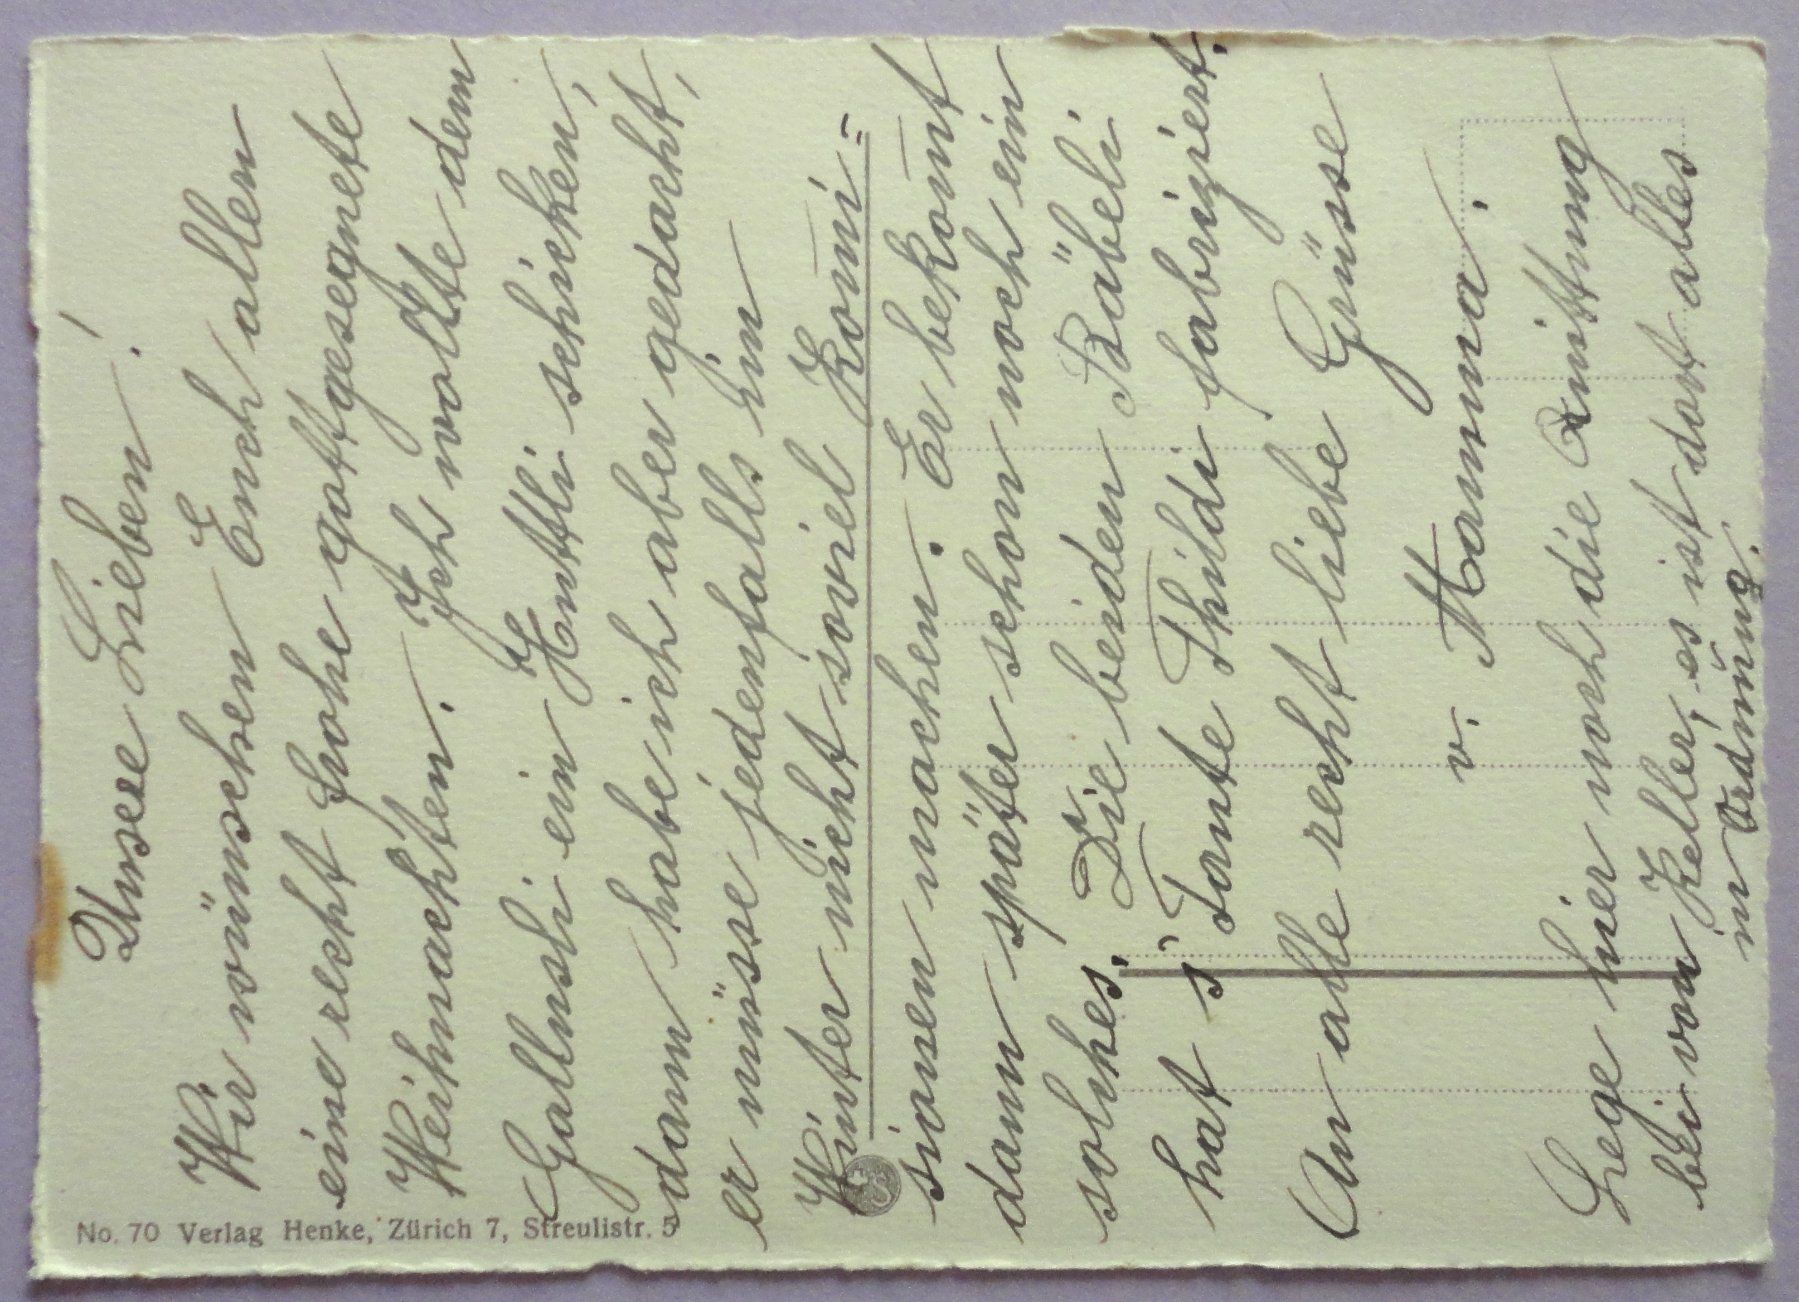 Unsere Lieben!
Wir wünschen Euch allen
eine recht frohe gottgesegnete
Weihnachten. Ich wollte dem
Gallusli ein Huttli schicken,
dann habe ich aber gedacht,
er müsse jedenfalls im
Winter nicht soviel Kom̄i=
sionen machen. Er bekom̄t
dann später schon noch ein
solches. Die beiden Bäbeli
hat s' Tante Thildi fabriziert.
An alle recht liebe Grüsse
v. Mamma.
Lege hier noch die Quittung
bei von Keller, es ist dort alles
in Ordnung.
No. 70 Verlag Henke, Zürich 7, Streulistr. 5